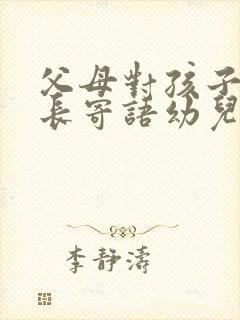 父母對孩子
長寄語幼兒
李靜濤